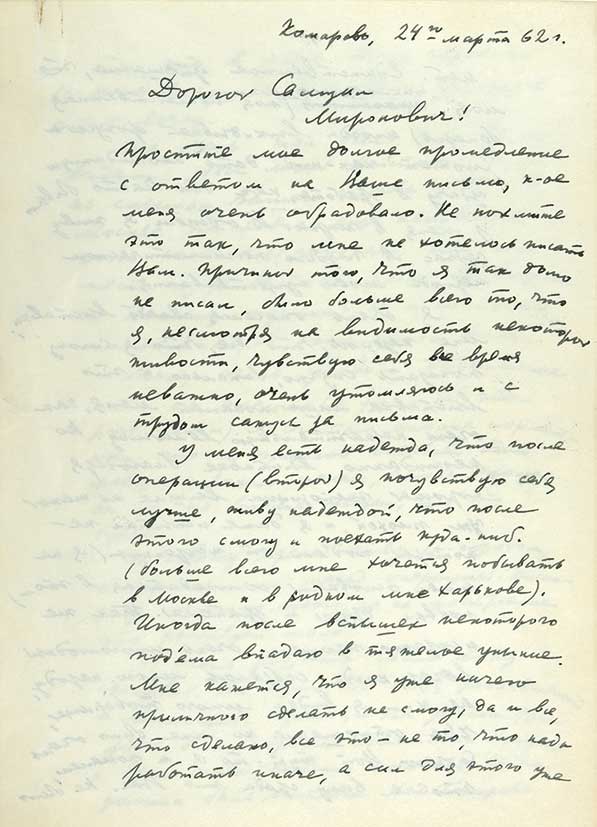 Комарово, 24го марта 62 г.
Дорогой Самуил
Миронович!
простите мое долгое промедление
с ответом на Ваше письмо, к-ое
меня очень обрадовало. Не поймите
это так, что мне не хотелось писать
Вам. Причиной того, что я так долго
не писал, было больше всего то, что
я, несмотря на видимость некоторой
живости, чувствую себя все время
неважно, очень утомляюсь и с
трудом сажусь за письма.
У меня есть надежда, что после
операции (второй) я почувствую себя
лучше, живу надеждой, что после
этого смогу и поехать куда-ниб.
(больше всего мне хочется побывать
в Москве и в родном мне Харькове).
Иногда после вспышек некоторого
подъема впадаю в тяжелое уныние.
Мне кажется, что я уже ничего
приличного сделать не смогу, да и все,
что сделано, все это – не то, что надо
работать иначе, а сил для этого уже